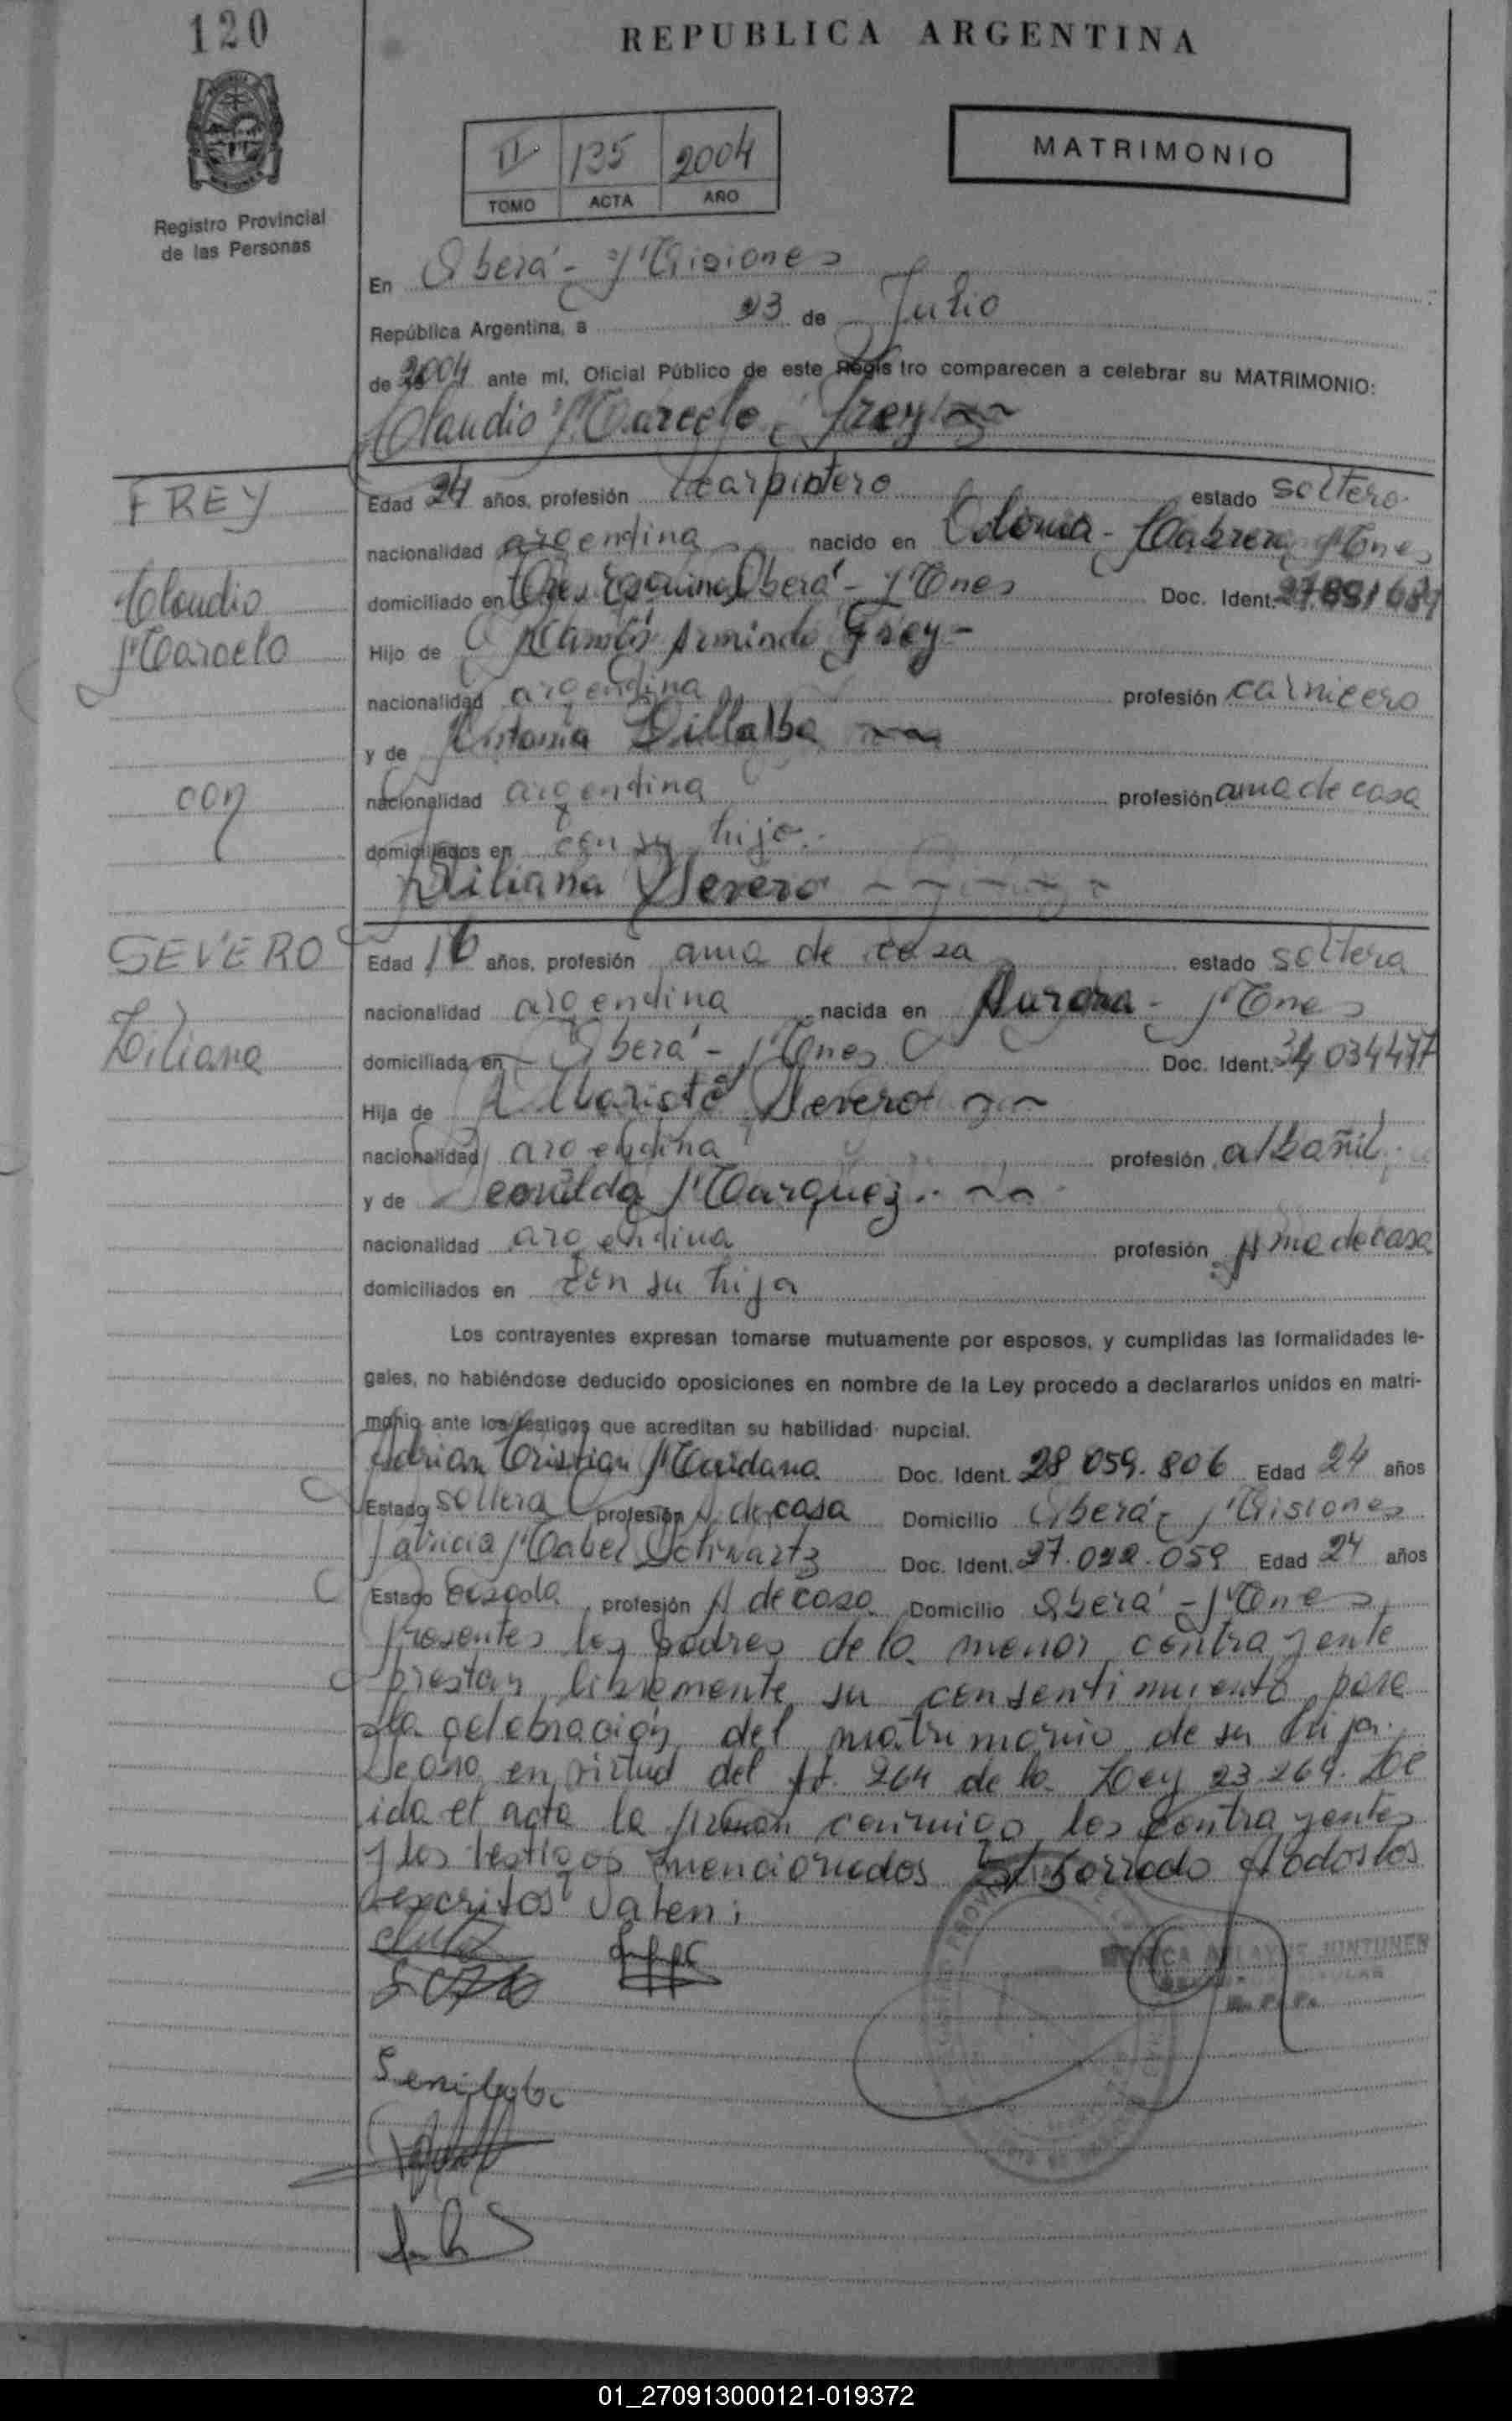 120
REPUBLICA ARGENTINA
II 135 2004
TOMO ACTA AÑO
MATRIMONIO
Registro Provincial
de las Personas
En Oberá - Misiones
República Argentina, a 23 de Julio
de 2004 ante mí, Oficial Público de este Registro comparecen a celebrar su MATRIMONIO:
Claudio Marcelo Frey
FREY
Claudio
Marcelo
con
SEVERO
Liliana
Edad 24 años, profesión Carpintero estado soltero
nacionalidad argentina nacido en Colonia - Cabrera Mnes
domiciliado en Tres Esquinas Oberá - Mnes Doc. Ident. 27891689
Hijo de Ramón Armindo Frey -
nacionalidad argentina profesión carnicero
y de Antonia Villalba
nacionalidad argentina profesión ama de casa
domiciliados en con su hijo.
Liliana Severo
Edad 16 años, profesión ama de casa estado soltera
nacionalidad argentina nacida en Aurora - Mnes
domiciliada en Oberá - Mnes Doc. Ident. 34 034477
Hija de Severo
nacionalidad argentina profesión albañil
y de Marquez
nacionalidad argentina profesión Ama de casa
domiciliados en con su hija
Los contrayentes expresan tomarse mutuamente por esposos, y cumplidas las formalidades le-
gales, no habiéndose deducido oposiciones en nombre de la Ley procedo a declararlos unidos en matri-
monio ante los testigos que acreditan su habilidad nupcial.
Adrian Cristian Maidana Doc. Ident. 28 059.806 Edad 24 años
Estado soltera profesión A. de casa Domicilio Oberá - Misiones
Patricia Mabel Schwartz Doc. Ident. 27.022.059 Edad 24 años
Estado casada profesión A de casa Domicilio Oberá - Mnes
Presentes los padres de la menor contrayente
prestan libremente su consentimiento para
la celebración del matrimonio de su hija.
en virtud del Art. 264 de la Ley 23.264. Le
ida el acta la firman conmigo los contrayentes
y los testigos mencionados borrado todos los
escritos Valen:
01_270913000121-019372